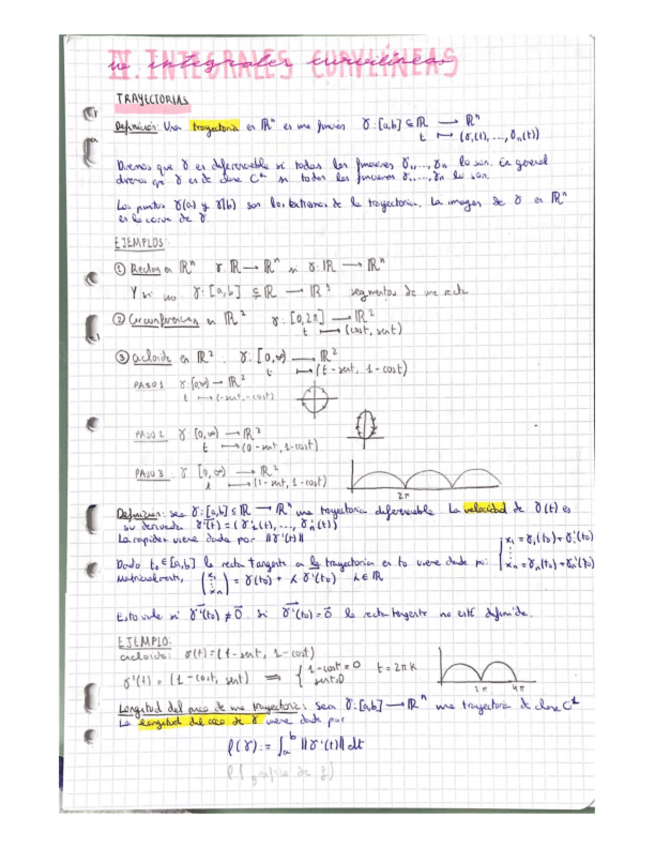 IV. INTEGRALES CURVILÍNEAS
IV integrales curvilíneas
TRAYECTORIAS
Definición: Una trayectoria en ℝⁿ es una función γ: [a,b] ⊆ ℝ → ℝⁿ
t ↦ (γ₁(t), ..., γₙ(t))
Diremos que γ es diferenciable si todas las funciones γ₁, ..., γₙ lo son. En general
diremos que γ es de clase Cᵏ si todas las funciones γ₁, ..., γₙ lo son.
Los puntos γ(a) y γ(b) son los extremos de la trayectoria. La imagen de γ en ℝⁿ
es la curva de γ.
EJEMPLOS:
① Rectas en ℝⁿ γ: ℝ → ℝⁿ si γ: ℝ → ℝⁿ
Y si no γ: [a,b] ⊊ ℝ → ℝ³ segmentos de una recta
② Circunferencias en ℝ² γ: [0,2π] → ℝ²
t ↦ (cost, sent)
③ cicloide en ℝ². γ: [0,∞) → ℝ²
t ↦ (t - sent, 1 - cost)
PASO 1 γ: [0,∞) → ℝ²
t ↦ (-sent, -cost)
PASO 2 γ [0,∞) → ℝ²
t ↦ (0 - sent, 1-cost)
PASO 3 γ [0,∞) → ℝ²
t ↦ (t - sent, 1 - cost)
2π
Definición: sea γ: [a,b] ⊆ ℝ → ℝⁿ una trayectoria diferenciable. La velocidad de γ(t) es
su derivada γ'(t) = (γ'₁(t), ..., γ'ₙ(t))
La rapidez viene dada por ||γ'(t)||
Dado t₀ ∈ [a,b] la recta tangente a la trayectoria en t₀ viene dada por: { x₁ = γ₁(t₀) + γ'₁(t₀)
⋮
xₙ = γₙ(t₀) + γₙ'(t₀)
Matricialmente, (x₁ ⋮ xₙ) = γ(t₀) + λ γ'(t₀) λ ∈ ℝ
Esto vale si γ'(t₀) ≠ 0. Si γ'(t₀) = 0 la recta tangente no está definida.
EJEMPLO:
cicloide: γ(t) = (t - sent, 1 - cost)
γ'(t) = (1 - cost, sent) ⇒ { 1 - cost = 0 t = 2πK
sent=0
2π 4π
Longitud del arco de una trayectoria: Sea γ: [a,b] → ℝⁿ una trayectoria de clase C¹
La longitud del arco de γ viene dada por
ℓ(γ) := ∫ₐᵇ ||γ'(t)|| dt
ℓ(gráfica de f)